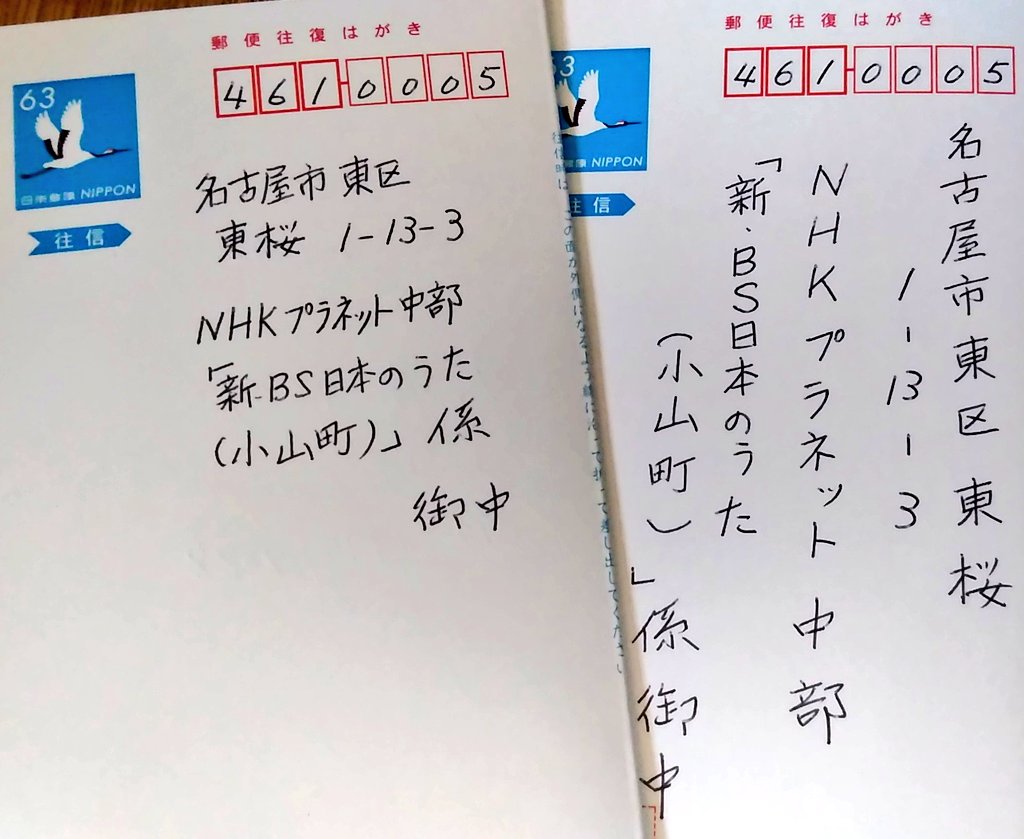 郵便往復はがき
461-0005
63
日本郵便 NIPPON
往信
名古屋市東区
東桜 1-13-3
NHKプラネット中部
「新・BS日本のうた
(小山町)」係
御中
郵便往復はがき
461-0005
63
日本郵便 NIPPON
往信
名古屋市東区東桜
1-13-3
NHKプラネット中部
「新・BS日本のうた
(小山町)」係御中